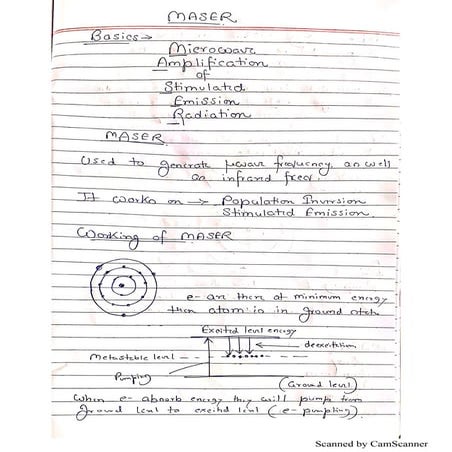 MASER
Basics →
Microwave
Amplification
of
Stimulated
Emission
Radiation
MASER
Used to generate μwave frequency, as well
as infrared freq
It works on → Population Inversion
Stimulated Emission
Working of MASER
e- are there at minimum energy
then atom is in ground state
Excited level energy
deexcitation
Metastable level
Pumping
(Ground level)
When e- absorb energy they will pump from
ground level to excited level (e- pumping).
Scanned by CamScanner